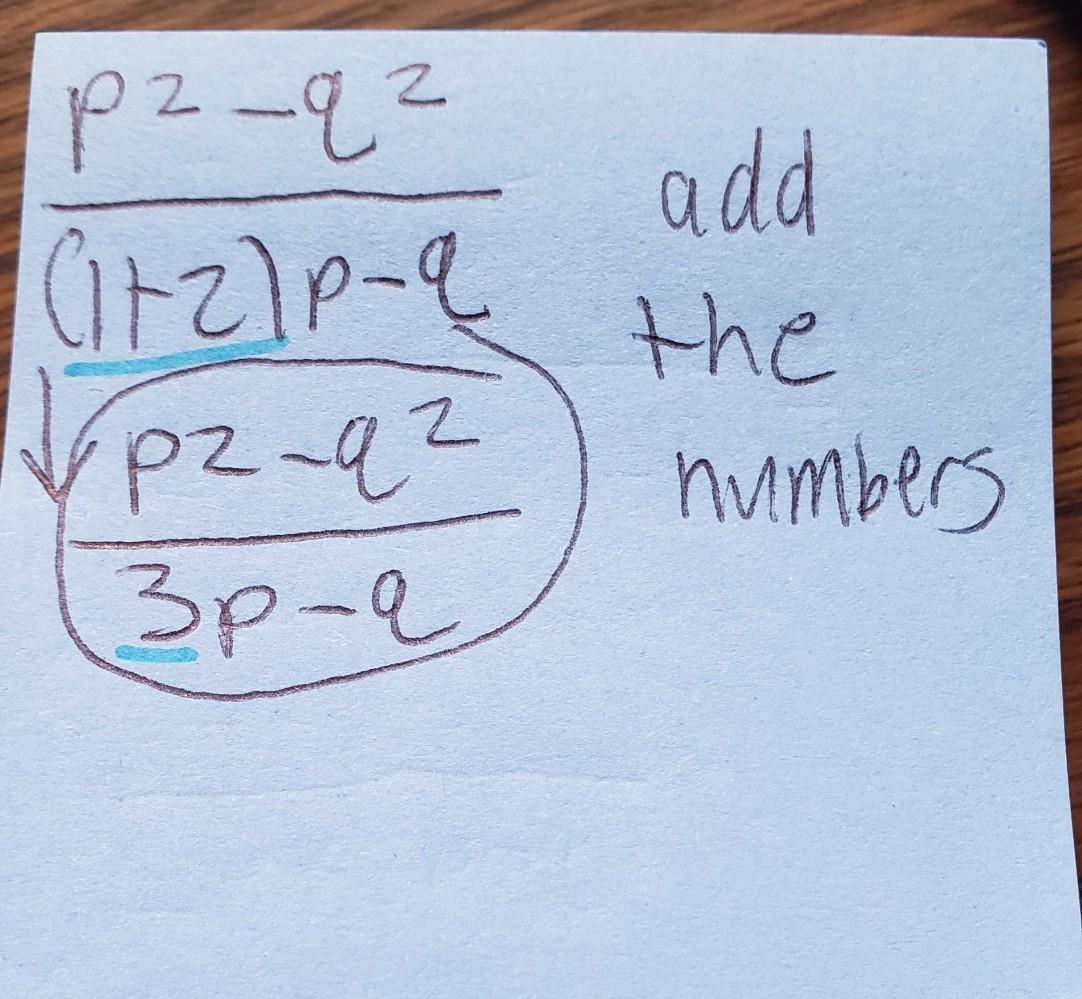 p² - q²
(1+2)p-q
p² - q²
3p-q
add
the
numbers